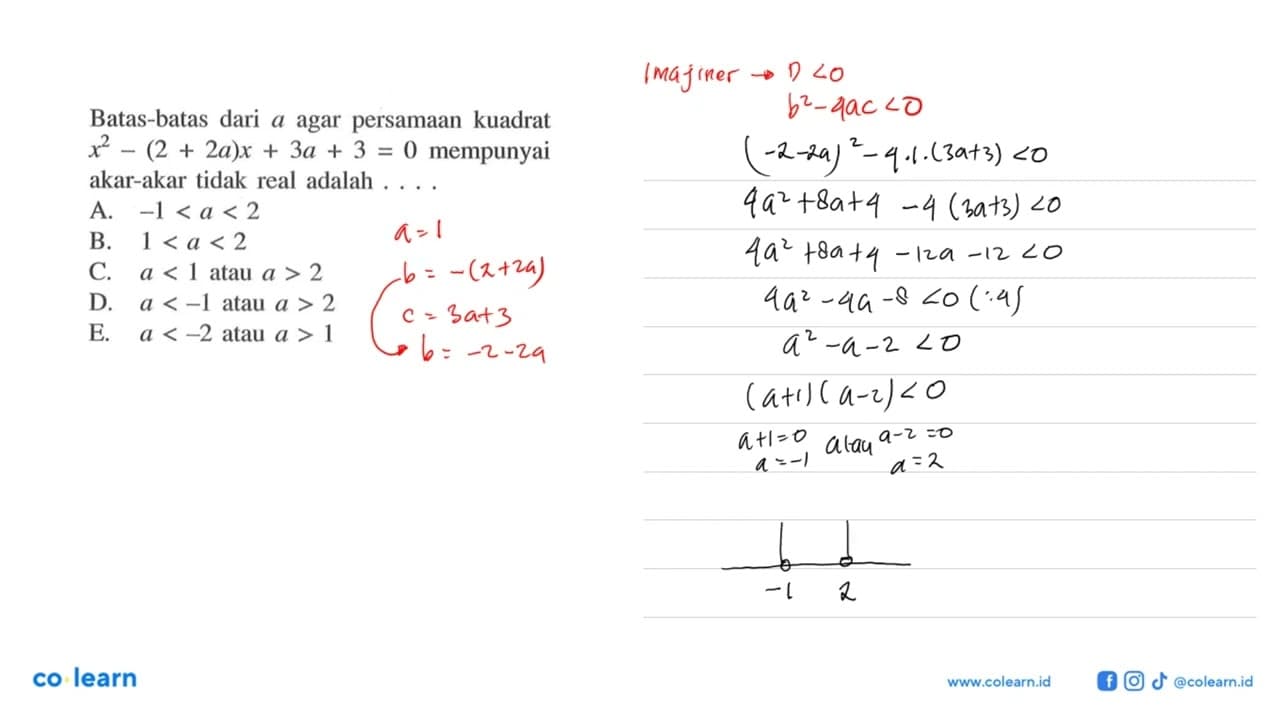 Batas-batas dari a agar persamaan kuadrat
x² − (2 + 2a)x + 3a + 3 = 0 mempunyai
akar-akar tidak real adalah . . . .
A. −1 < a < 2
B. 1 < a < 2
C. a < 1 atau a > 2
D. a < −1 atau a > 2
E. a < −2 atau a > 1
a = 1
b = −(2+2a)
c = 3a+3
b = −2−2a
Imajiner → D < 0
b² − 4ac < 0
(−2−2a)² − 4.1.(3a+3) < 0
4a² + 8a + 4 − 4(3a+3) < 0
4a² + 8a + 4 − 12a − 12 < 0
4a² − 4a − 8 < 0 (:4)
a² − a − 2 < 0
(a+1)(a−2) < 0
a+1=0 atau a−2=0
a=−1 a=2
−1 2
co learn
www.colearn.id @colearn.id